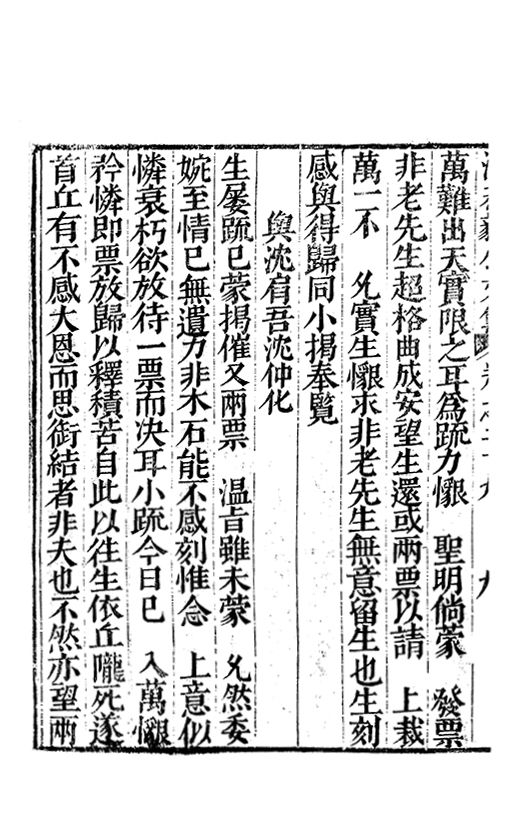 萬難出天實限之耳爲疏力懇　聖明倘蒙　發票
非老先生超格曲成安望生還或兩票以請　上裁
萬一不　允實生懇求非老先生無意留生也生刻
感與得歸同小揭奉覽
與沈肩吾沈仲化
生屡疏已蒙揭催又兩票　温旨雖未蒙　允然委
婉至情已無遺力非木石能不感刻惟念　上意似
憐衰朽欲放待一票而决耳小疏今日已　入萬懇
矜憐即票放歸以釋積苦自此以往生依丘隴死遂
首丘有不感大恩而思銜結者非夫也不然亦望兩